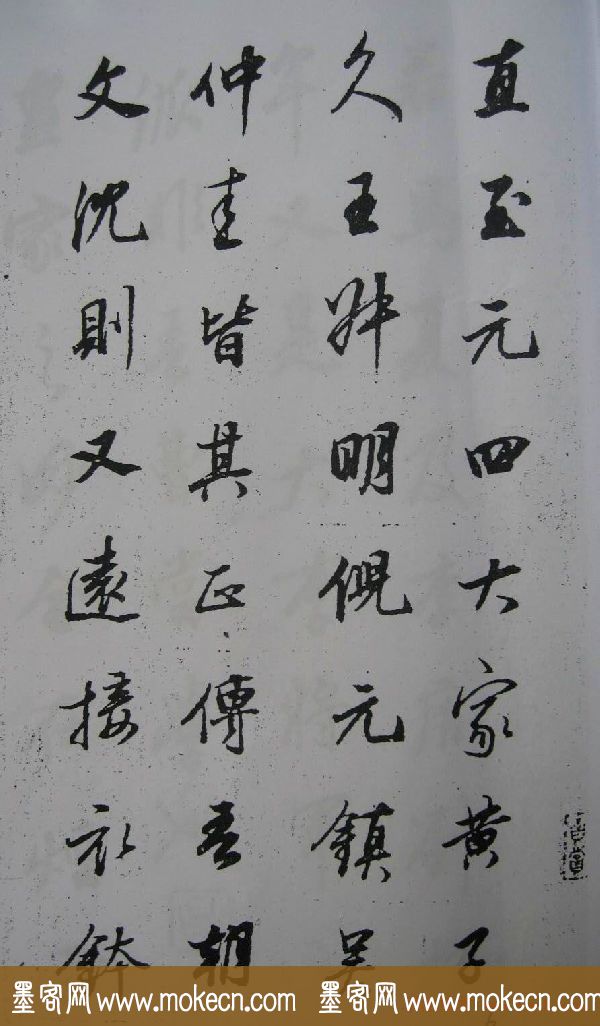 直至元四大家黄子
久王叔明倪元鎮吴
仲圭皆其正傳吾朝
文沈則又遠接衣鉢
墨客网 www.mokecn.com 墨客网 www.mokecn.com